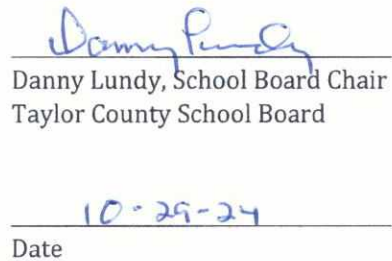 Danny Lundy
Danny Lundy, School Board Chair
Taylor County School Board
10-29-24
Date